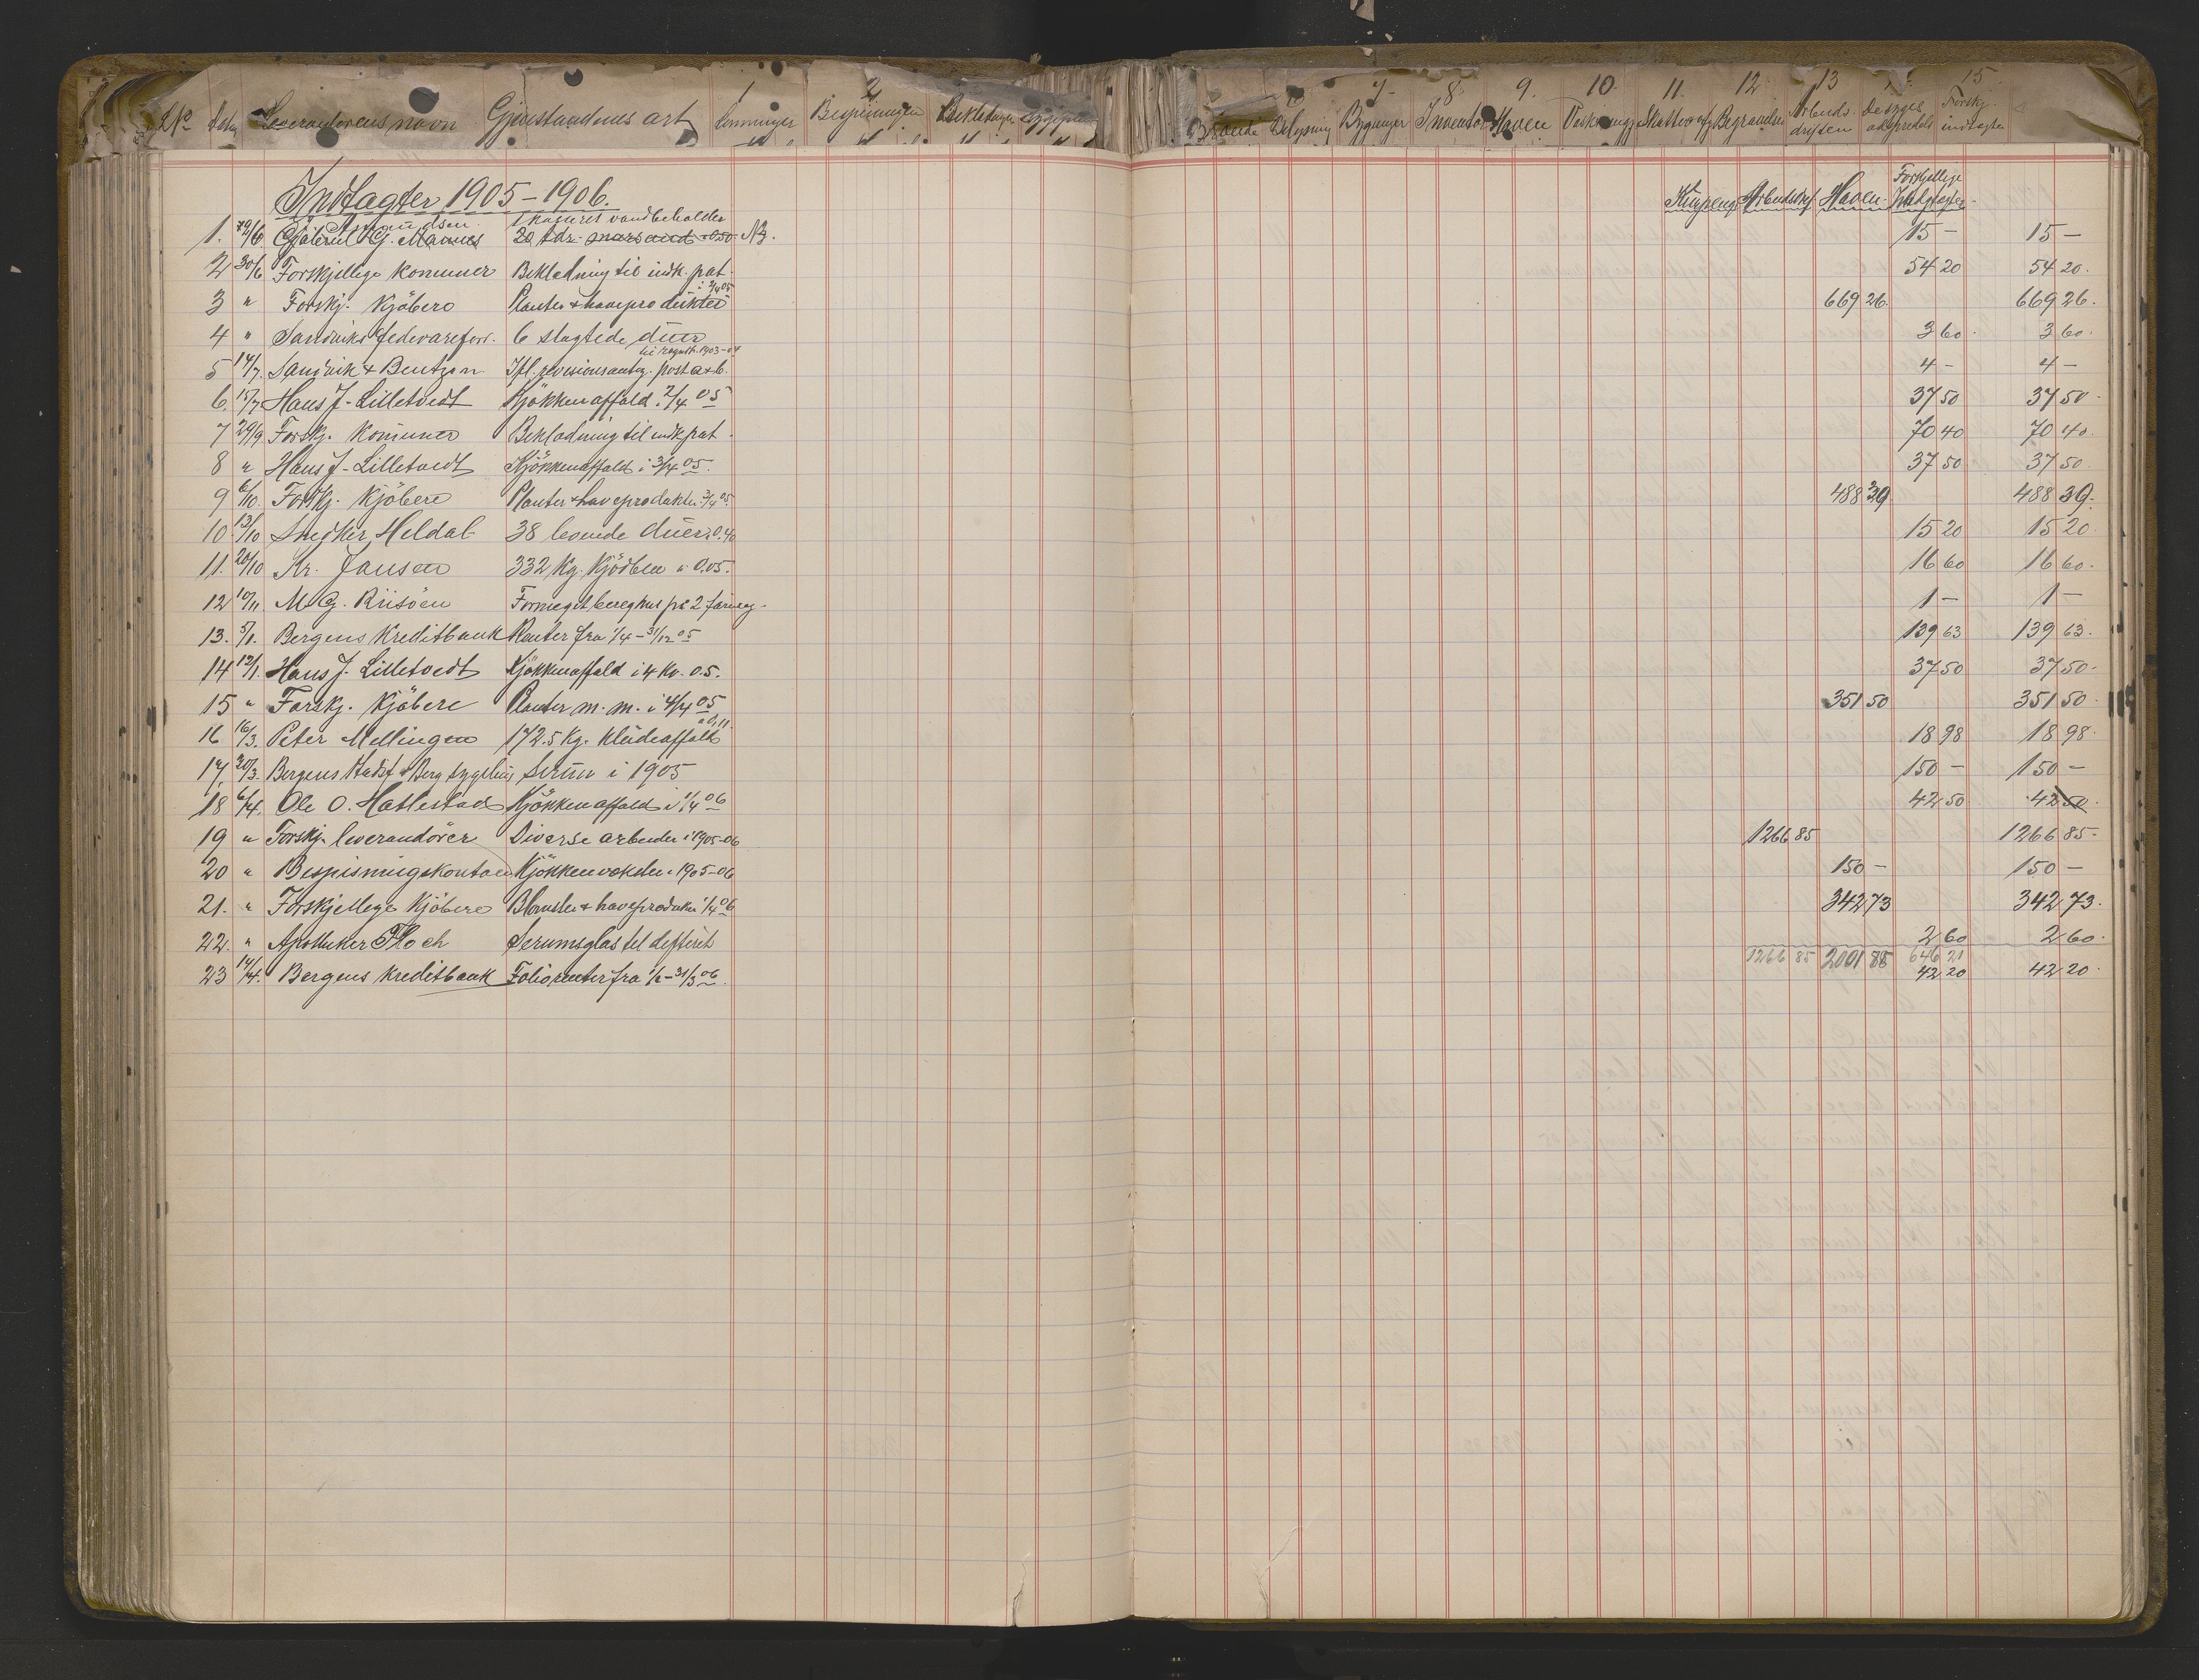 No Dato Leverandørens navn Gjenstandens art Lønninger Bespisningen Beklædningen Sygepleie
1 2 7 8 9. 10. 11. 12 13 15
Brænde Belysning Bygninger Inventar Haven Vaskning Skatter og afg Begravelser Arbeids-driften De syges adspredelse Forskj. indtægter
Indtægter 1905-1906.
Kurpenge Arbeidsdrif Haven Forskjellige Indtægter
1. 29/6 Gjøterud G. Mannes 1 kasseret vandbeholder
20 tdr. 0.50 15 - 15 -
2 30/6 Forskjellige kommuner Beklædning til indk. pat. 54 20 54 20.
3 " Forskj. kjöbere Planter & haveprodukter i 2/4 05 669 26. 669 26.
4 " Sandviks fedevareforr. 6 slagtede duer 3 60. 3 60.
5 14/7. Sandvik & Bentzon Ifl. revisionsantg. post a & b. til regnsk. 1903-04 4 - 4 -
6. 15/7 Hans J. Lilletvedt Kjökkenaffald i 2/4 05 37 50 37 50.
7 29/9 Forskj. kommuner Beklædning til indk pat. 70 40 70 40.
8 " Hans J. Lilletvedt Kjökkenaffald i 3/4 05. 37 50 37 50.
9 6/10. Forskj. kjöbere Planter & haveprodukter 3/4 05. 488 39 488 39.
10. 13/10 Snedker Heldal 38 levende duer à 0.40 15 20 15 20.
11. 20/10 Kr. Jansen 332 Kg. Kjödben à 0.05. 16 60 16 60.
12 10/11 M. G. Riisöen Formeget beregnet på 2 1 - 1 -
13. 5/1. Bergens Kreditbank Renter fra 1/4 - 31/12 05 139 63 139 63.
14 12/1. Hans J. Lilletvedt Kjökkenaffald i 4 kv. 05. 37 50 37 50.
15 " Forskj. kjöbere Planter m. m. i 4/4 05 351 50 351 50.
16 16/3. Peter Mellingen 172.5 Kg. kludeaffald à 0,11 18 98 18 98.
17. 20/3. Bergens Stadsf & Berg sygehus Serum i 1905 150 - 150 -
18 6/4. Ole O. Hatlestad Kjökkenaffald i 1/4 06 42 50 42 50.
19 " Forskj. leverandörer Diverse arbeider i 1905-06 1266 85 1266 85.
20 " Bespisningskontoen Kjökkenvækster i 1905-06 150 - 150 -
21. " Forskjellige kjöbere Blomster & haveprodukter 1/4 06 342 73 342 73.
22. " Apotheker Floch Serumsglas til defterit 2 60 2 60.
1266 85 2001 88 646 21
23 14/4. Bergens kreditbank Foliorenter fra 1/1 - 31/3 06. 42 20 42 20.